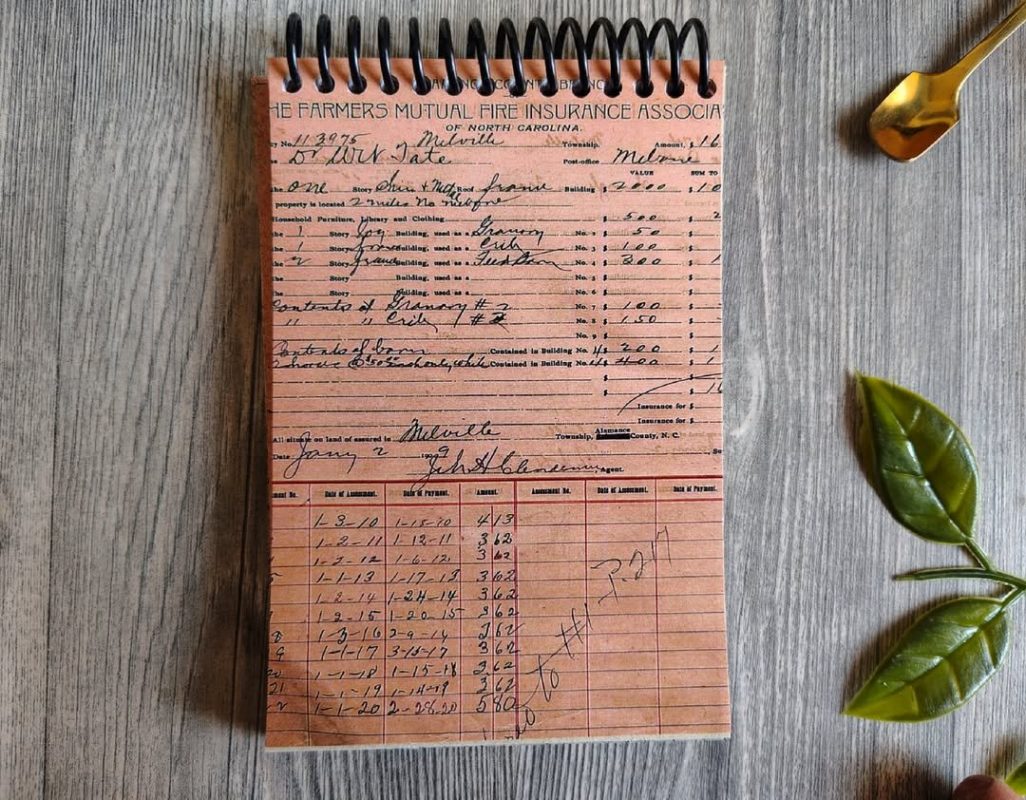 HE FARMERS MUTUAL FIRE INSURANCE ASSOCIA
OF NORTH CAROLINA.
y No. 113975 Melville Township, Amount, $ 16
Dr W N Tate Post-office Mebane
VALUE SUM TO
he one Story Shin + Roof frame Building $ 2000 $ 10
property is located 2 miles No Mebane
Household Furniture, Library and Clothing $ 500 2
he 1 Story Log Building, used as a Granary No. 2 $ 50
he 1 Story frame Building, used as a Crib No. 3 $ 100
he 2 Story frame Building, used as a Feed Barn No. 4 $ 300 1
he Story Building, used as a No. 5 $
he Story Building, used as a No. 6 $
Contents of Granary # 2 No. 7 $ 100
" " Crib / # 3 No. 8 $ 150
No. 9 $
Contents of barn Contained in Building No. 4 $ 200 1
Contained in Building No. 4 $ 400 1
$
$ 16
Insurance for $
Insurance for $
All situate on land of assured in Melville Township, Alamance County, N. C.
Date Jany 2 1909
Jno H Clendenin Agent.
ment No. Date of Assessment. Date of Payment. Amount. Assessment No. Date of Assessment. Date of Payment.
1-3-10 1-15-10 4 13
1-2-11 1-12-11 3 62
1-2-12 1-6-12 3 62
1-1-13 1-17-13 3 62
1-2-14 1-24-14 3 62
1-2-15 1-20-15 3 62
8 1-3-16 2-9-14 3 62
9 1-1-17 3-15-17 3 62
20 1-1-18 1-15-18 3 62
21 1-1-19 1-14-19 3 62
1-1-20 2-28-20 5 80
to #1 P. 217